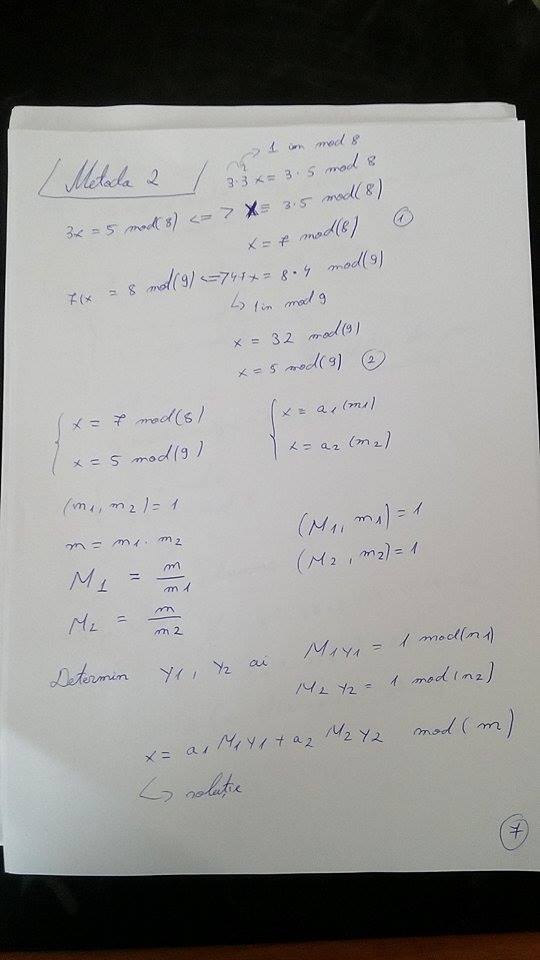 Metoda 2
1 in mod 8
3·3 x = 3·5 mod 8
3x = 5 mod(8) <=> x = 3·5 mod(8)
x = 7 mod(8) 1
7x = 8 mod(9) <=> 7·4 x = 8·4 mod(9)
↳ 1 in mod 9
x = 32 mod(9)
x = 5 mod(9) 2
{ x = 7 mod(8)
x = 5 mod(9)
{ x = a1 (m1)
x = a2 (m2)
(m1, m2) = 1
m = m1 · m2
M1 = m/m1
M2 = m/m2
(M1, m1) = 1
(M2, m2) = 1
Determin y1, y2 ai M1y1 = 1 mod(n1)
M2 y2 = 1 mod(n2)
x = a1 M1 y1 + a2 M2 y2 mod(m)
↳ soluție
7